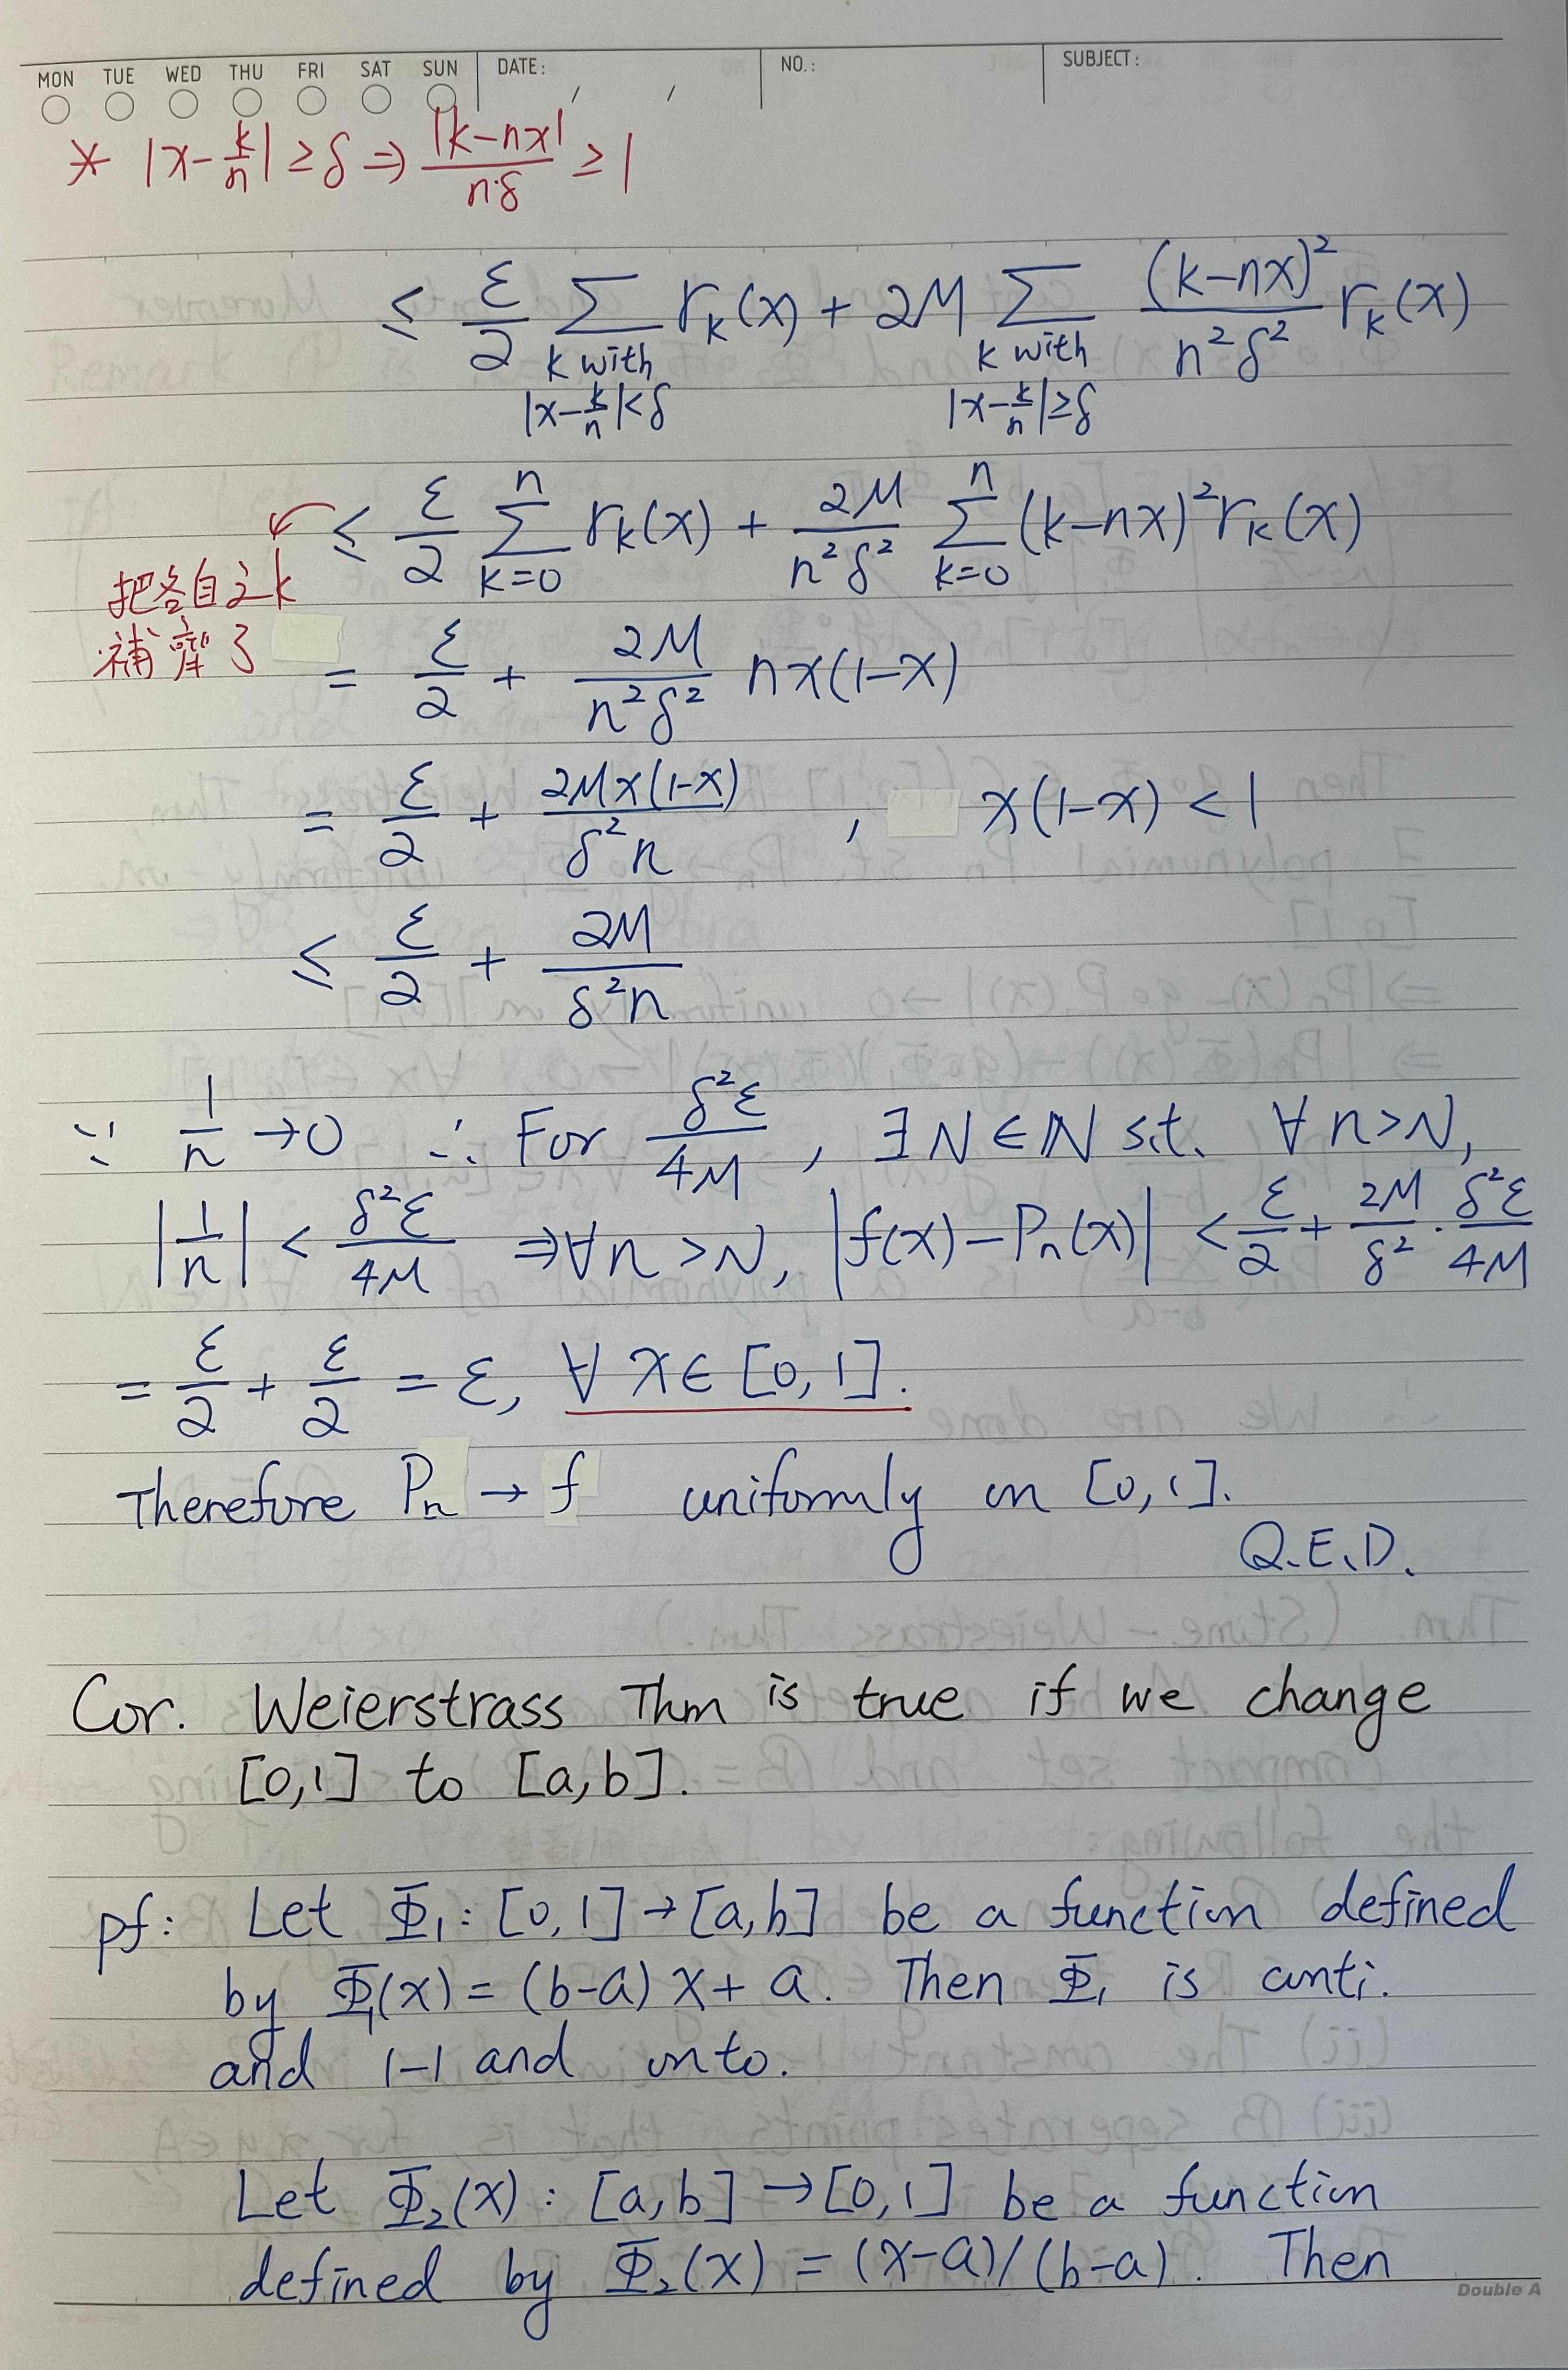 MON TUE WED THU FRI SAT SUN DATE: / / NO.: SUBJECT:
* |x-k/n| ≥ δ ⇒ |k-nx|/(n·δ) ≥ 1
≤ ε/2 Σ_{k with |x-k/n|<δ} r_k(x) + 2M Σ_{k with |x-k/n|≥δ} (k-nx)²/(n²δ²) r_k(x)
≤ ε/2 Σ_{k=0}^{n} r_k(x) + 2M/(n²δ²) Σ_{k=0}^{n} (k-nx)² r_k(x)
把各自之k
補齊了
= ε/2 + 2M/(n²δ²) nx(1-x)
= ε/2 + 2Mx(1-x)/(δ²n) , x(1-x) < 1
≤ ε/2 + 2M/(δ²n)
∵ 1/n → 0 ∴ For δ²ε/4M , ∃ N ∈ ℕ s.t. ∀ n>N,
|1/n| < δ²ε/4M ⇒ ∀ n > N, |f(x) - P_n(x)| < ε/2 + 2M/δ² · δ²ε/4M
= ε/2 + ε/2 = ε, ∀ x ∈ [0,1].
Therefore P_n → f uniformly on [0,1].
Q.E.D.
Cor. Weierstrass Thm is true if we change
[0,1] to [a,b].
pf: Let Φ₁: [0,1] → [a,b] be a function defined
by Φ₁(x) = (b-a)x + a. Then Φ₁ is conti.
and 1-1 and onto.
Let Φ₂(x): [a,b] → [0,1] be a function
defined by Φ₂(x) = (x-a)/(b-a). Then
Double A